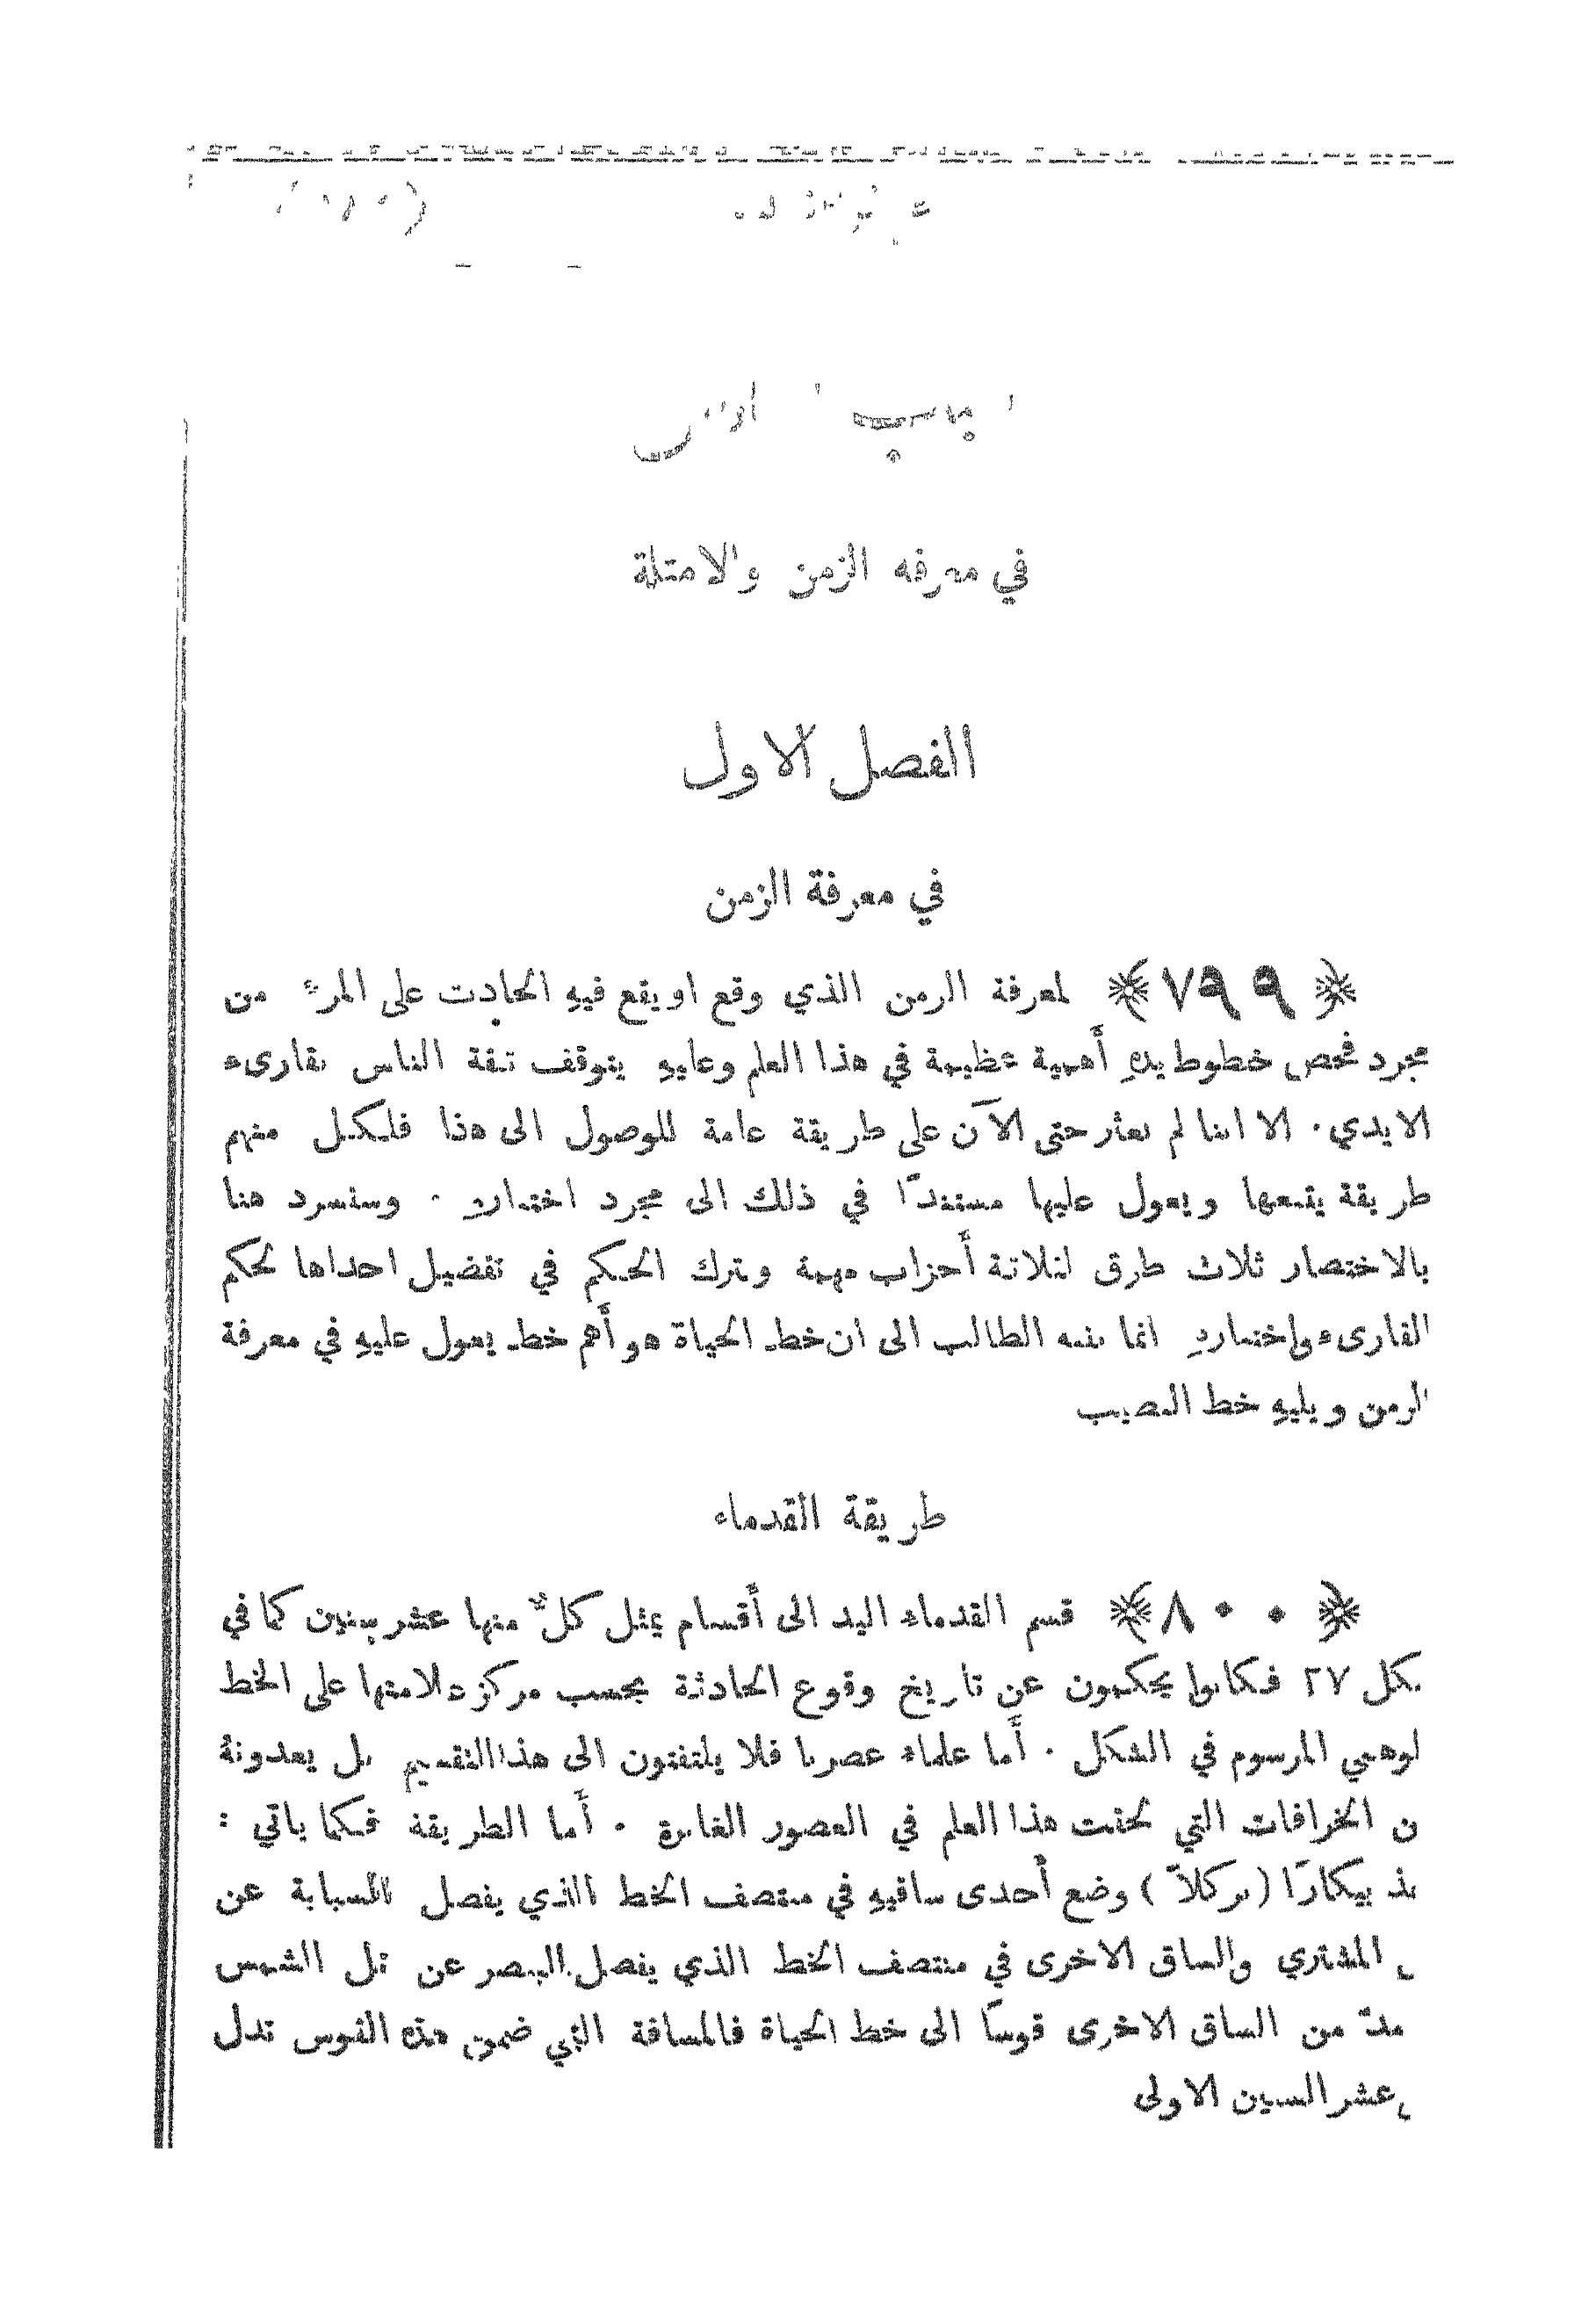 في معرفه الزمن والامثلة
الفصل الاول
في معرفة الزمن
﴿ ٧٩٩ ﴾ لمعرفة الزمن الذي وقع او يقع فيهِ الحادث على المرء من
مجرد فحص خطوط يدهِ أهمية عظيمة في هذا العلم وعليهِ يتوقف ثقة الناس بقارىء
الايدي . الا اننا لم نعثر حتى الآن على طريقة عامة للوصول الى هذا فلكل منهم
طريقة يتبعها ويعول عليها مستندًا في ذلك الى مجرد اختبارهِ . وسنسرد هنا
بالاختصار ثلاث طرق لثلاثة أحزاب مهمة ونترك الحكم في تفضيل احداها لحكم
القارىء واختبارهِ انما ننبه الطالب الى ان خط الحياة هو أهم خط يعول عليهِ في معرفة
الزمن ويليهِ خط النصيب
طريقة القدماء
﴿ ٨٠٠ ﴾ قسم القدماء اليد الى أقسام يمثل كلٌّ منها عشر سنين كما في
شكل ٢٧ فكانوا يحكمون عن تاريخ وقوع الحادثة بحسب مركز علامتها على الخط
لوهمي المرسوم في الشكل . أما علماء عصرنا فلا يلتفتون الى هذا التقسيم بل يعدونهُ
ن الخرافات التي لحقت هذا العلم في العصور الغابرة . أما الطريقة فكما ياتي :
خذ بيكارًا (بركلاً) وضع أحدى ساقيهِ في منتصف الخط الذي يفصل السبابة عن
المشتري والساق الاخرى في منتصف الخط الذي يفصل البنصر عن تل الشمس
مدّ من الساق الاخرى قوسًا الى خط الحياة فالمسافة التي ضمن هذه القوس تدل
عشر السنين الاولى